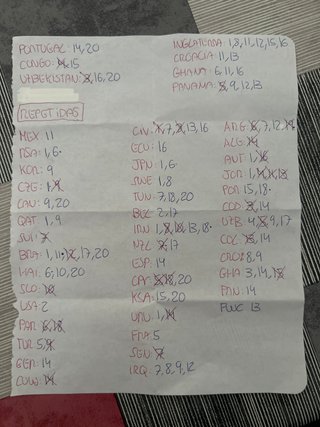 PORTUGAL: 14, 20
CONGO: 14, 15
UZBEKISTAN: 8, 16, 20
INGLATERRA: 1, 8, 11, 12, 15, 16
CROACIA: 11, 13
GHANA: 6, 11, 16
PANAMA: 5, 9, 12, 13
REPETIDAS
MEX 11
RSA: 1, 6
KOR: 9
CZE: 1, 9
CAN: 9, 20
QAT: 1, 9
SUI: 7
BRA: 1, 11, 17, 20
HAI: 6, 10, 20
SCO: 10
USA 2
PAR: 6, 18
TUR: 5, 9
GER: 14
CUW: 14
CIV: 7, 13, 16
ECU: 16
JPN: 1, 6
SWE 1, 8
TUN: 7, 18, 20
BEL: 2, 17
IRN 1, 8, 10, 13, 18
NZL: 7, 17
ESP: 14
CPV: 20
KSA: 15, 20
URU: 1, 14
FRA: 5
SEN: 7
IRQ: 7, 8, 9, 12
ARG: 6, 7, 12, 14
ALG: 14
AUT: 1, 16
JOR: 1
POR: 15, 18
COD: 14
UZB: 4, 9, 17
COL: 14
CRO: 8, 9
GHA: 3, 14, 18
PAN: 14
FWC 13